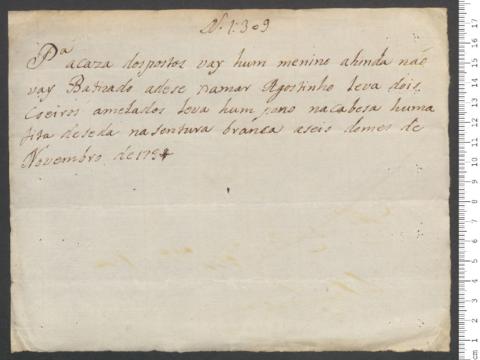 N. 1309
Pª acaza dospostos vay hum menino ahinda não
vay Batizado adese xamar Agostinho leva dois
Cueiros ametados leva hum pano nacabesa huma
fita deseda nasentura branca aseis domes de
Novembro de 1794